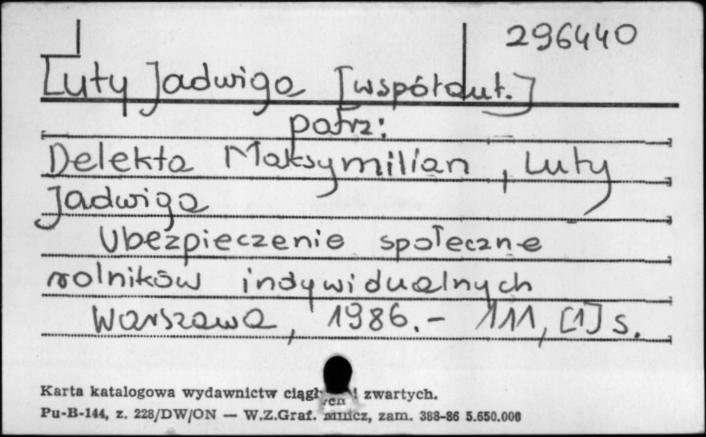 296440
Luty Jadwiga [współaut.]
patrz:
Delekta Maksymilian, Luty
Jadwiga
Ubezpieczenie społeczne
rolników indywidualnych
Warszawa, 1986.- 111, [1] s.
Karta katalogowa wydawnictw i zwartych.
Pu-B-144, z. 228/DW/ON — W.Z.Graf. zam. 388-86 5.650.000